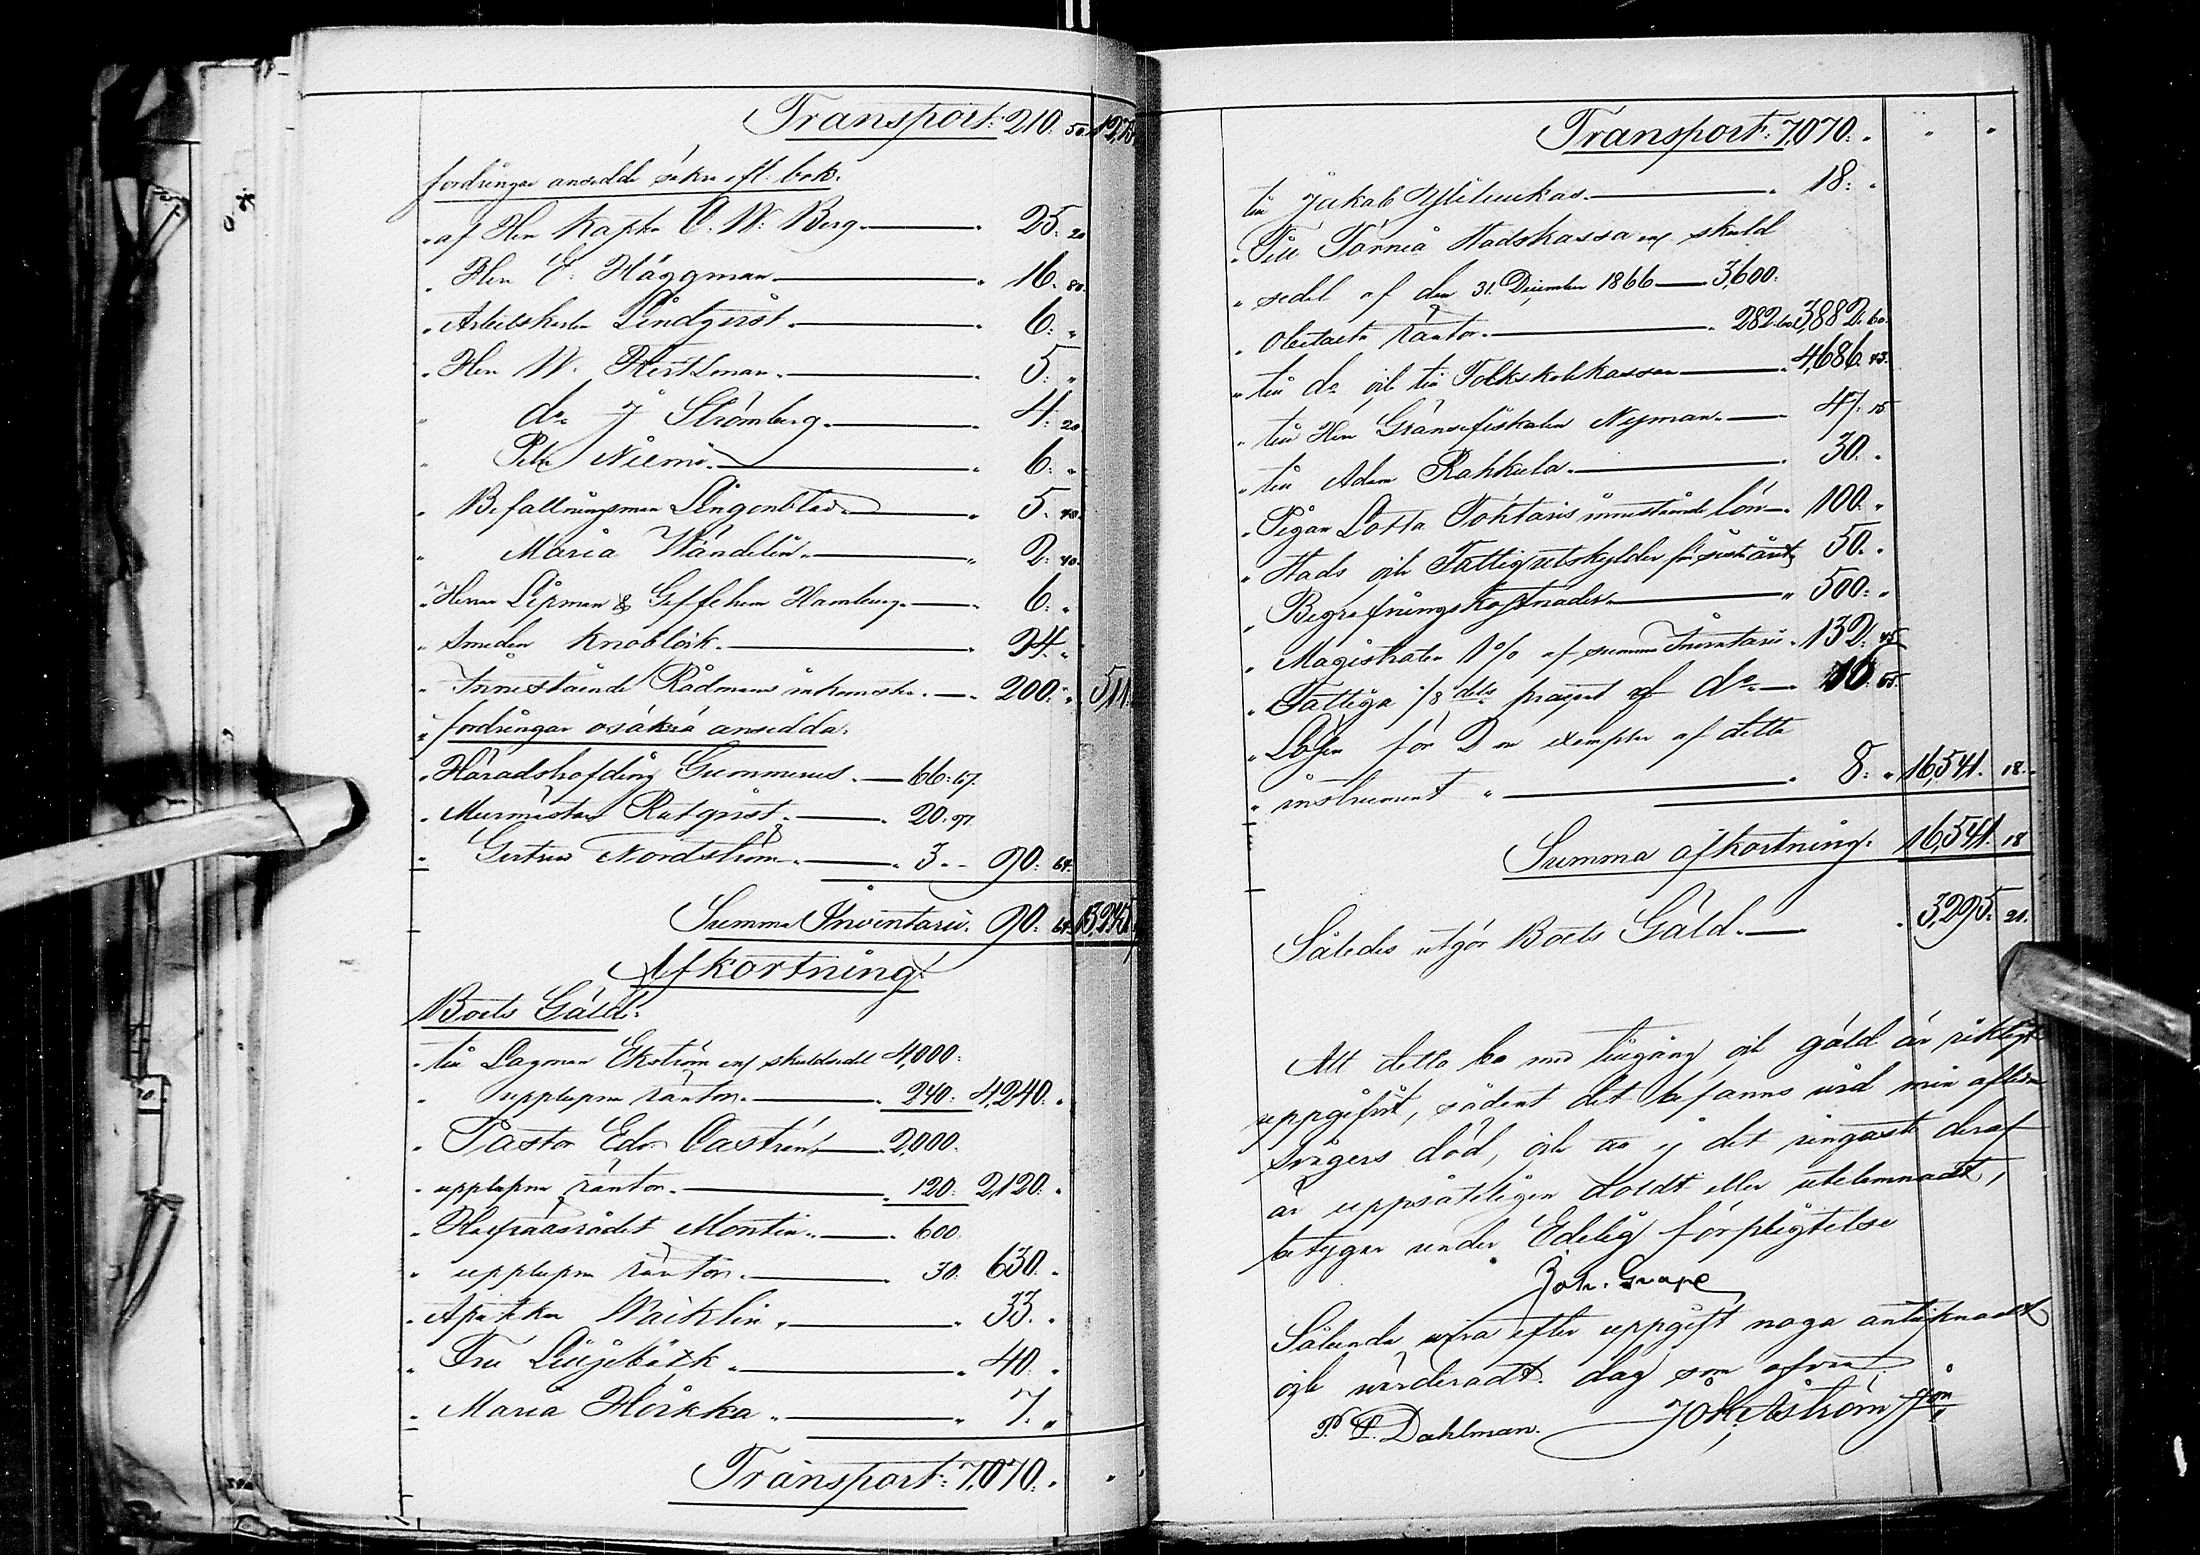 Transport: 210. 50. 12,73
fordringar ansedde säkra efl. bok.
" af Herr Kapten C. W. Berg. — " 25. 20
" Herr E. Häggman — " 16. 80.
" Arbetskarlen Lindqvist. — " 6. "
" Herr W. Hertzman. — " 5. "
" d:o J Strömberg. — " 4. 20
" Petr Niemi. — " 6. "
" Befallningsman Lingonblad — " 5. 40.
" Maria Wandelin. — " 2. 40.
" Herrar Lipman & Geffcken Hamburg. — " 6. "
" Smeden Knoblock. — " 24. "
" Innestående Rådmans inkomster. — " 200. " 511.
" fordringar osäkra ansedda.
" Häradshöfding Gummerus. — 66: 67.
" Murmästar Rutqvist. — " 20. 97.
" Gertrud Nordström. — " 3. - 90: 64.
Summa Inventarii. 90. 64. 13,245
Afkortning:
Boets Gäld:
" till Lagman Ekström enl skuldsedel 4,000:
" upplupna räntor. — " 240: 4,240. "
" Pastor Edv. Castrén — 2,000.
" upplupna räntor. — " 120: 2,120. "
" Hofrådsrådet Montin. — " 600
" upplupna räntor. — " 30. 630. "
" Apotekar Wæcklin. — " 33. "
" Fru Liljebäck. — " 40. "
" Maria Hörkkä. — " 7. "
Transport: 7,070. "
Transport: 7,070. "
till Jakob — " 18: "
" Till Torneå Stadskassa enl skuld
" sedel af den 31. December 1866 — 3,600.
" Obetalta räntor. — " 282.60 3,882. 60.
" till d:o och till Folkskolekassan — " 4,686. 43.
" till Herr Gränsefiskalen Nyman. — " 47. 15
" till Adam Rahkula. — " 30. "
" Pigan Lotta Tohtaris innestående lön — " 100. "
" Stads och Fattigutskylder för sistl året 50. "
" Begrafningskostnader. — " 500: "
" Magistraten 1% af summa Inventarii. " 132. 45
" Fattiga 1/8 dels procent af d:o. — 16. 55.
" Lösen för 2 ne exemplar af detta
" instrument " — " 8: " 16,541. 18.
Summa afkortning. 16,541. 18
Således utgör Boets Gäld. — " 3,295. 21.
Att detta bo med tillgång och gäld är riktigt
uppgifvit, sådant det befanns vid min aflidne
Svågers död, och att ej det ringaste deraf
är uppsåteligen doldt eller utelemnadt,
betygar under Edelig förpligtelse
Joh. Grape
Sålunda vara efter uppgift noga antecknadt
och värderadt. dag som ofvan
P. P. Dahlman. Joh. Åström J:on